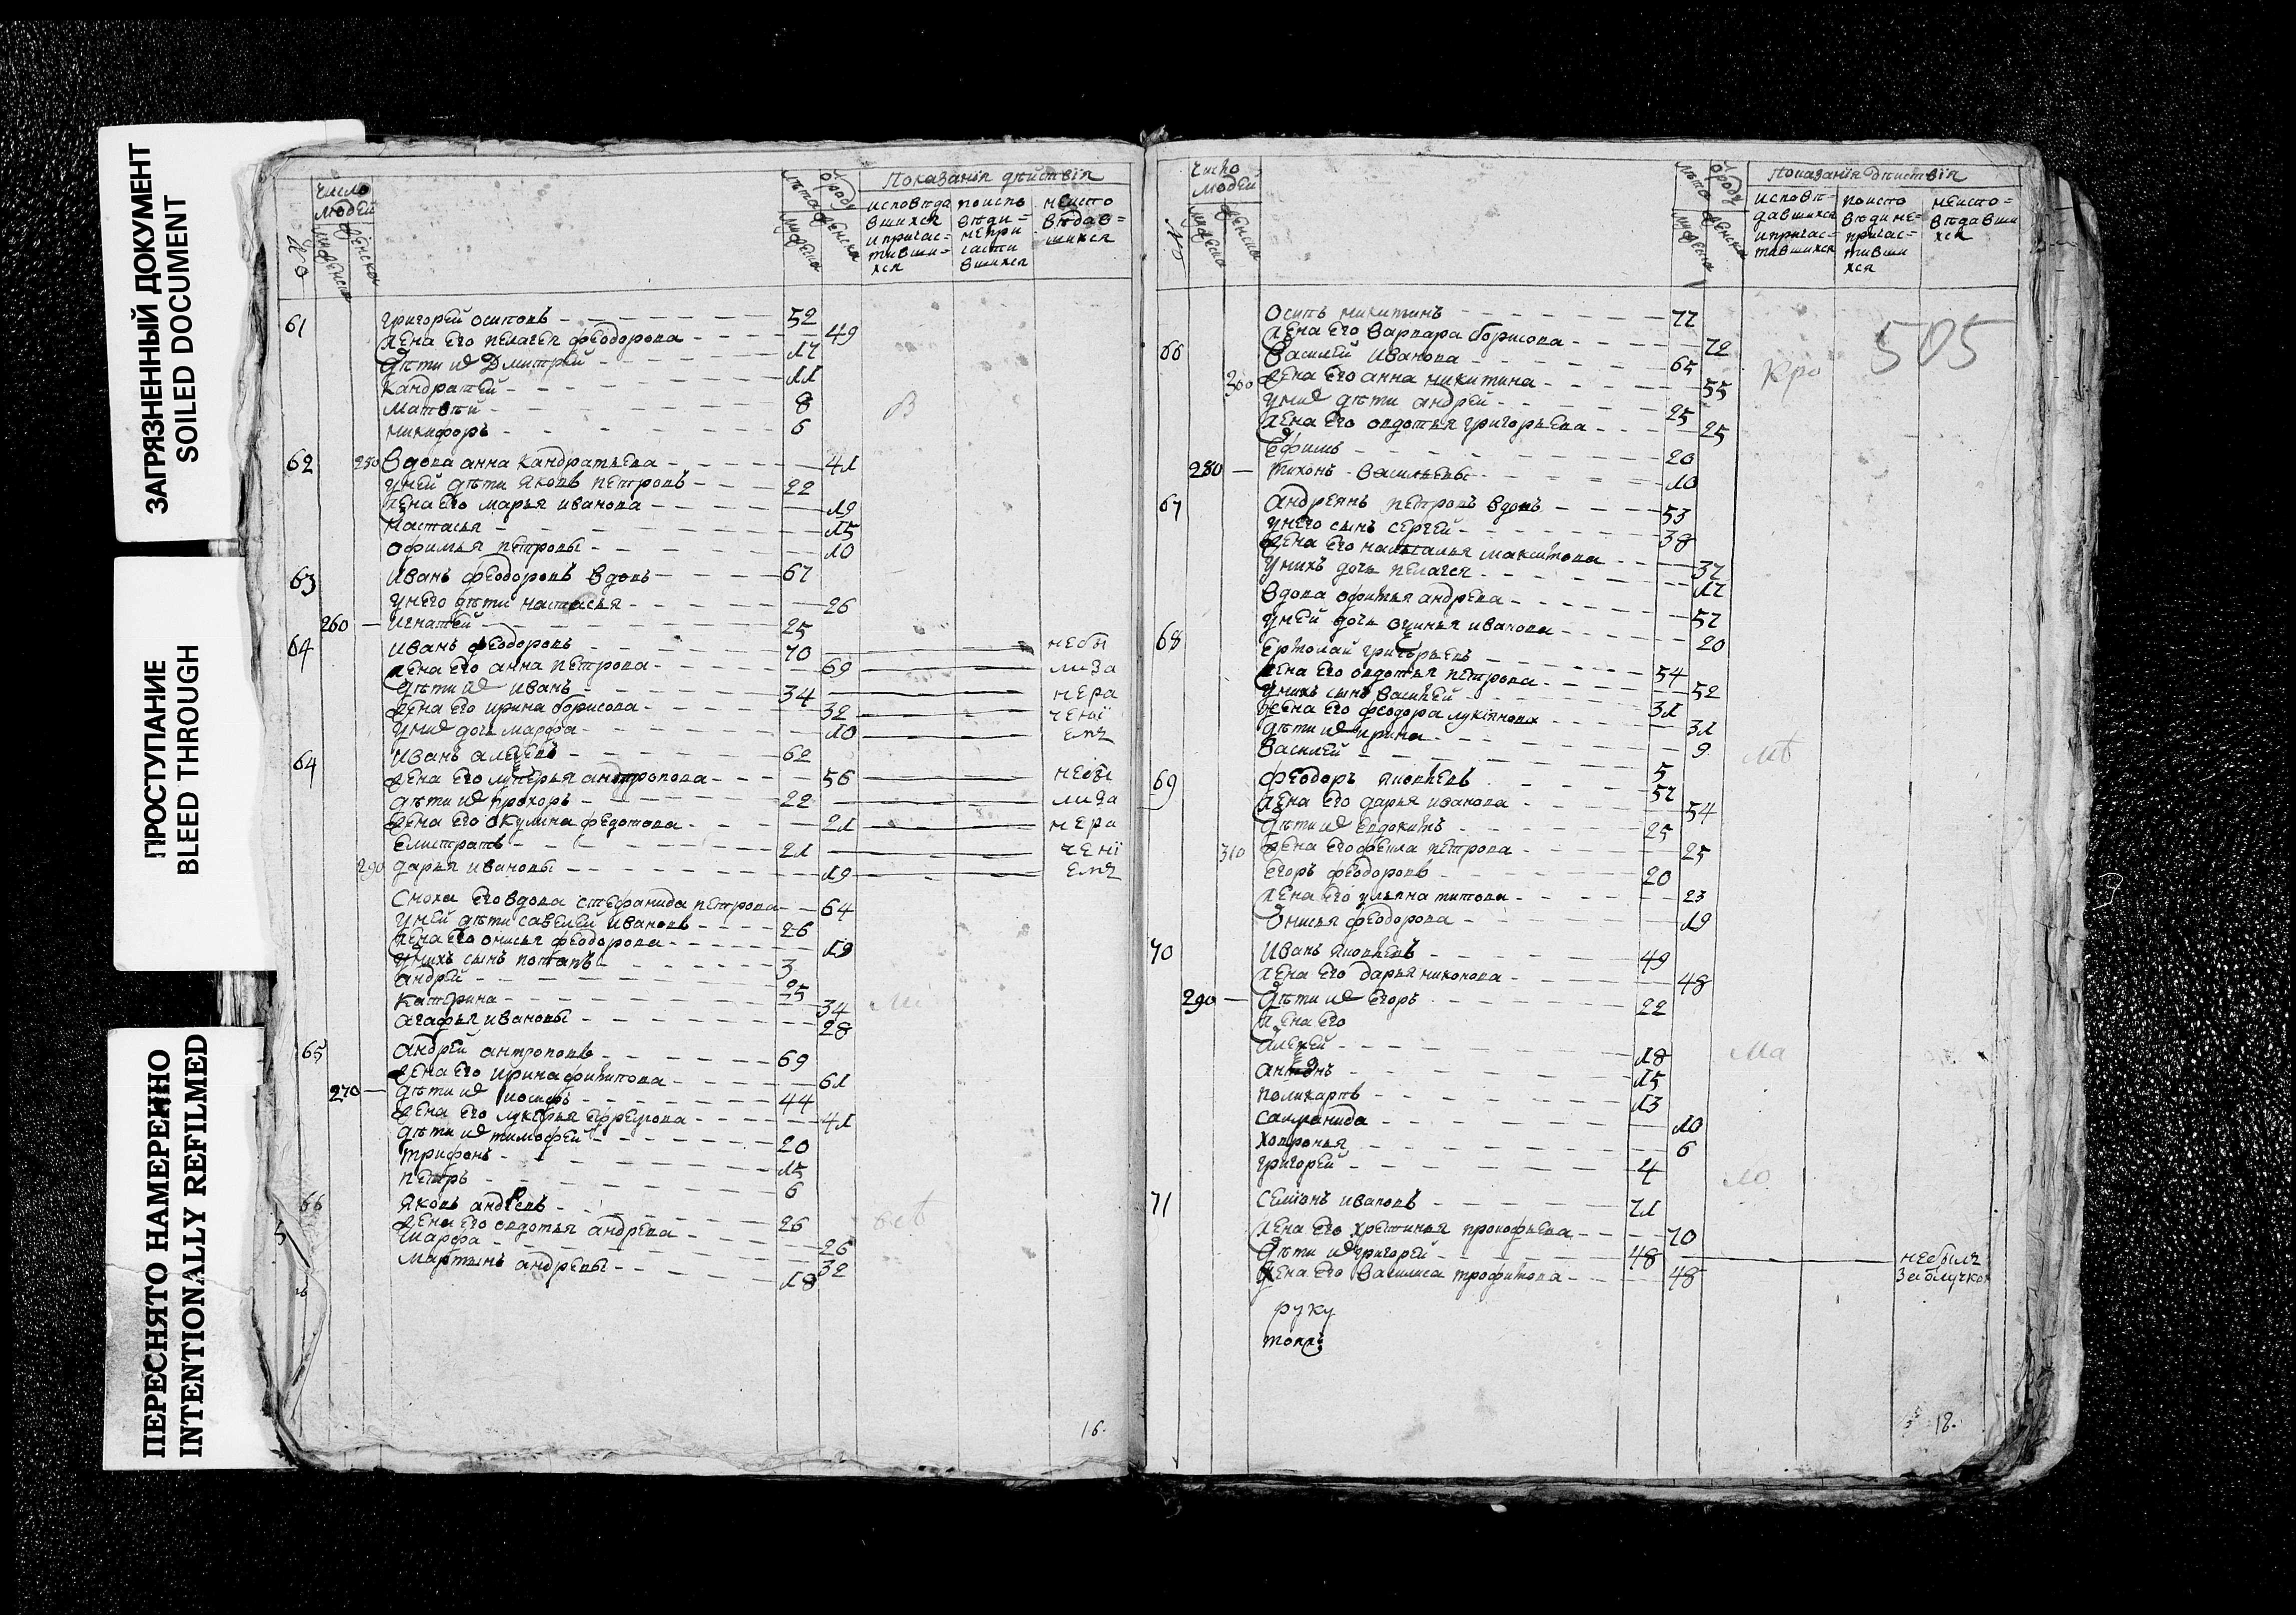 ЗАГРЯЗНЕННЫЙ ДОКУМЕНТ
SOILED DOCUMENT
ПРОСТУПАНИЕ
BLEED THROUGH
ПЕРЕСНЯТО НАМЕРЕННО
INTENTIONALLY REFILMED
Число людей
№
Лѣта
Показанїя дѣиствїя
исповѣда вшихся и причас= тивши= хся
по испо вѣди= не при части вшихся
не испо вѣдав= шихся
61 григорей осиповъ 52
жена его пелагея феодорова 49
дѣти их Дмитрей 17
кандратей 11
матвѣи 8
никифоръ 6
62 250 вдова анна кандратьева 41
у ней дѣти яковъ петровъ 22
жена его марья иванова 19
настасья 15
офимья петровы 10
63 иванъ феодоровъ вдовъ 67
у него дѣти настасья 26
260 игнатей 25
64 иванъ феодоровъ 70 небы
жена его анна петрова 69 лиза
дѣти их иванъ 34 нера
жена его ирина борисова 32 ченї
у них дочь марфа 10 емъ
64 иванъ алеѯевъ 62
жена его лукерья антропова 56 небы
дѣти их прохоръ 22 лиза
жена его окулина федотова 21 нера
елистратъ 21 ченї
290 дарья ивановы 19 емъ
сноха его вдова стефанида петрова 64
у ней дѣти савелей ивановъ 26
жена его онисья феодорова 19
у нихъ сынъ потапъ 3
андрей 25
катерина 34
агафья ивановы 28
65 андрей антроповъ 69
жена его ирина филипова 61
270 дѣти их иосифъ 44
жена его лукерья ефремова 41
дѣти их тимофей 20
трифонъ 15
петръ 6
66 яковъ андреевъ 26
жена его овдотья андрева 26
марфа 32
мартынъ андревы 18
16.
Число людей
№
Показанїя дѣиствїя
исповѣ= давшихся и причас= тившихся
по испо вѣди не= причас= тивши хся
не испо= вѣдавши хся
505
осипъ никитинъ 77
жена его варвара борисова 72
66 василей иванова 65
300 жена его анна никитина 55
у них дѣти андрей 25
жена его овдотья григорьева 25
ефимъ 20
280 тихонъ васильевы 10
67 андреянъ петровъ вдовъ 53
у него сынъ сергей 38
жена его наталья максимова 37
у нихъ дочь пелагея 17
вдова офимья андрева 57
у ней дочь иванова 20
68 ермолай григорьевъ 54
жена его овдотья петрова 52
у нихъ сынъ василей 31
жена его феодора лукїянова 31
дѣти их ирина 9
василей 5
69 феодоръ яковлевъ 57
жена его дарья иванова 54
дѣти их евдокимъ 25
310 жена его фекла петрова 25
егоръ феодоровъ 20
жена его ульяна титова 23
онисья феодорова 19
70 иванъ яковлевъ 49
жена его дарья никонова 48
290 дѣти их егоръ 22
жена его
алеѯей 18
антонъ 15
поликарпъ 13
10
6
григорей 4
71 семїонъ ивановъ 71
жена его хрестинья прокофьева 70
дѣти их григорей 48 небылъ
жена его василиса трофимова 48
руку
18.